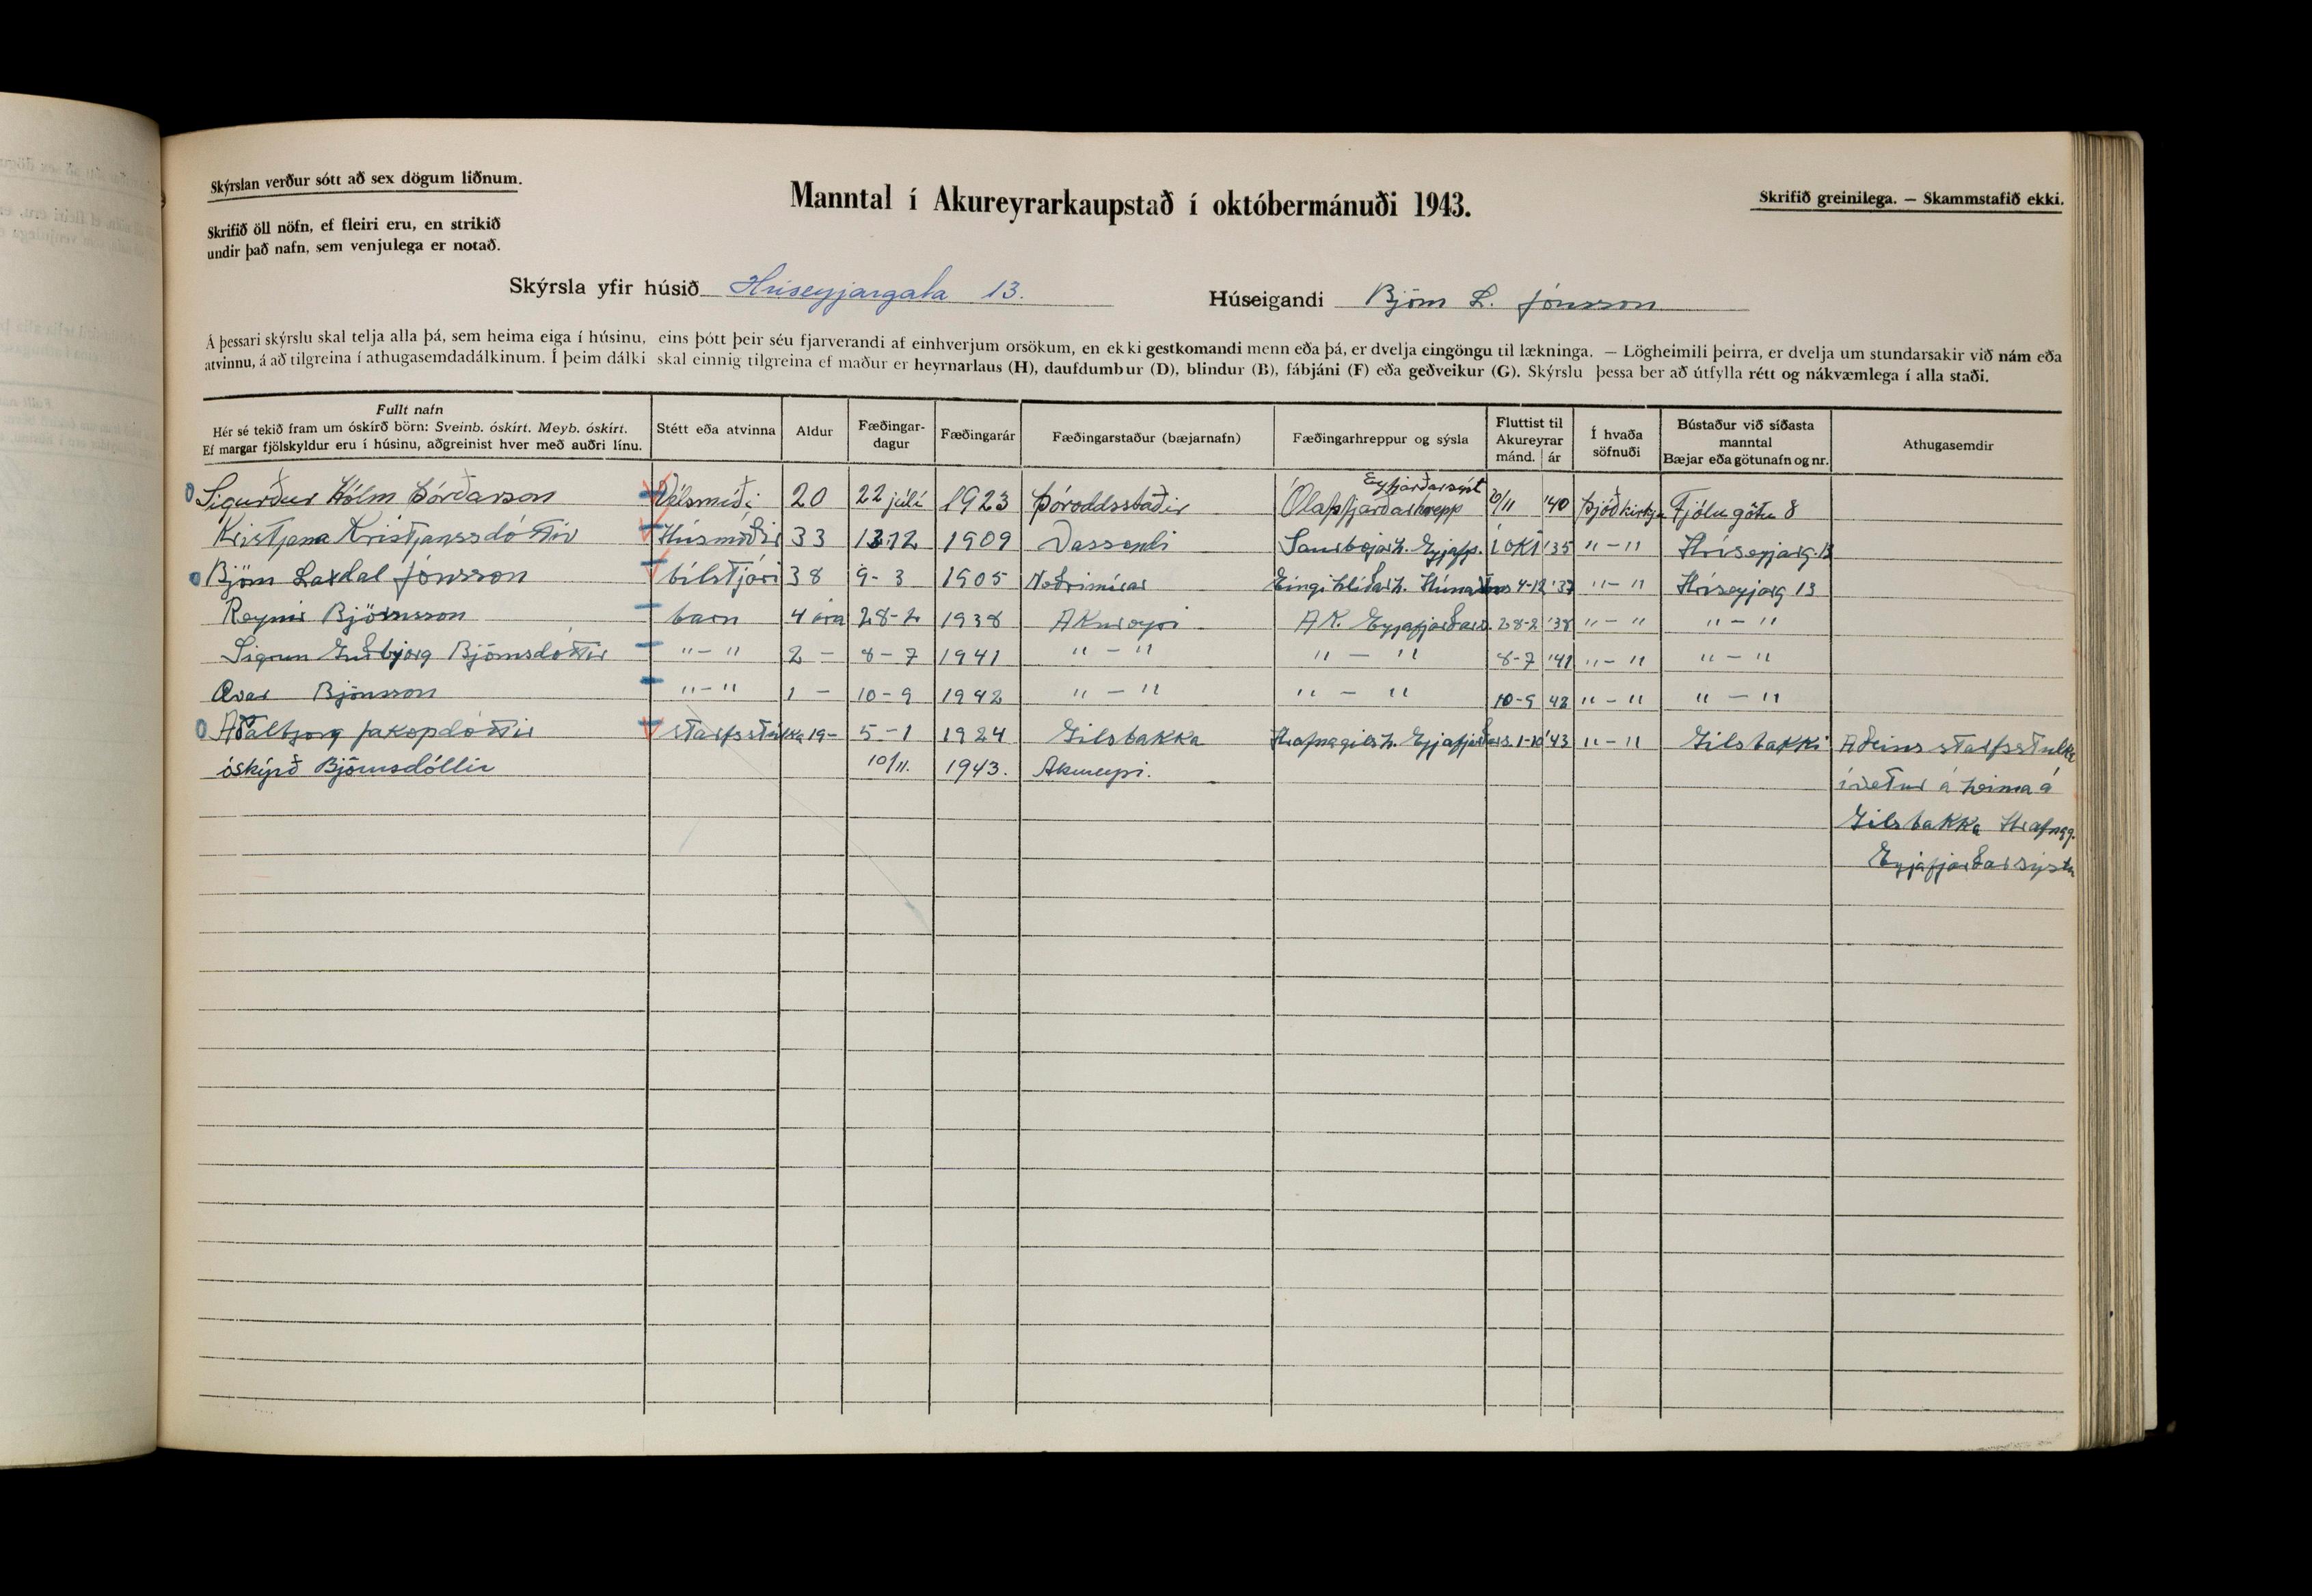 Skýrslan verður sótt að sex dögum liðnum.
Manntal í Akureyrarkaupstað í októbermánuði 1943.
Skrifið greinilega. — Skammstafið ekki.
Skrifið öll nöfn, ef fleiri eru, en strikið
undir það nafn, sem venjulega er notað.
Skýrsla yfir húsið Hríseyjargata 13. Húseigandi Björn L. Jónsson
Á þessari skýrslu skal telja alla þá, sem heima eiga í húsinu, eins þótt þeir séu fjarverandi af einhverjum orsökum, en ekki gestkomandi menn eða þá, er dvelja eingöngu til lækninga. — Lögheimili þeirra, er dvelja um stundarsakir við nám eða
atvinnu, á að tilgreina í athugasemdadálkinum. Í þeim dálki skal einnig tilgreina ef maður er heyrnarlaus (H), daufdumbur (D), blindur (B), fábjáni (F) eða geðveikur (G). Skýrslu þessa ber að útfylla rétt og nákvæmlega í alla staði.
Fullt nafn
Hér sé tekið fram um óskírð börn: Sveinb. óskírt. Meyb. óskírt.
Ef margar fjölskyldur eru í húsinu, aðgreinist hver með auðri línu.
Stétt eða atvinna
Aldur
Fæðingar-
dagur
Fæðingarár
Fæðingarstaður (bæjarnafn)
Fæðingarhreppur og sýsla
Fluttist til
Akureyrar
mánd. ár
Í hvaða
söfnuði
Bústaður við síðasta
manntal
Bæjar eða götunafn og nr.
Athugasemdir
Eyjfjarðarsýsl
Sigurður Hólm Þórðarson Vélsmíði 20 22 júlí 1923 Þóroddsstaðir Ólafsfjarðarhrepp /11 '40 Þjóðkirkja Fjólugötu 8
Kristjana Kristjánssdóttir Húsmóðir 33 1909 Saurbæjarh. Eyjafj. 1 okt '35 "-" Hríseyjarg. 13
Björn Laxdal Jónsson bílstjóri 38 9-3 1905 Engihlíðarh. 4-12 '37 "-" Hríseyjarg 13
Reynir Björnsson barn 4 ára 28-2 1938 Akureyri AK. Eyjafjarðars. 28-2 '38 "-" "-"
Sigrun Guðbjörg Björnsdóttir "-" 2 - 8-7 1941 "-" "-" 8-7 '41 "-" "-"
Björnsson "-" 1 - 10-9 1942 "-" "-" 10-9 42 "-" "-"
Aðalbjörg Jakopdóttir starfsstúlka 19- 5-1 1924 Gilsbakka Hrafnagilsh. Eyjafjarðars. 1-10 '43 "-" Gilsbakki Aðeins starfsstulka
óskýrð Björnsdóttir 10/11. 1943. Akureyri.
í vetur á heima á
Gilsbakka Hrafnag.
Eyjafjarðarsýslu